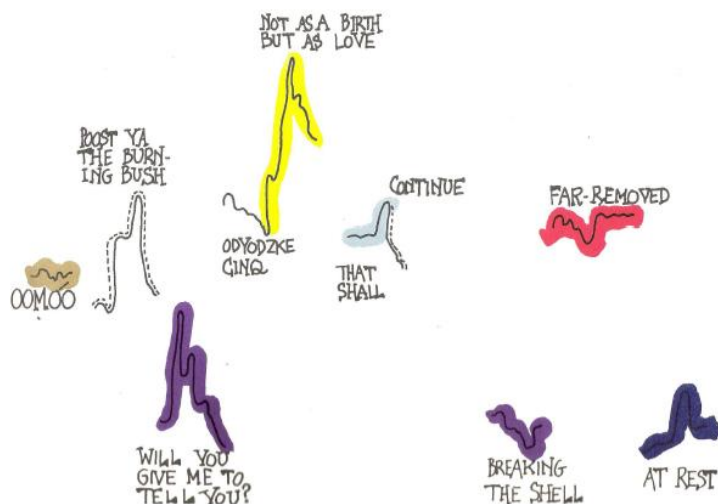 NOT AS A BIRTH
BUT AS LOVE
POOST YA
THE BURN-
ING BUSH
CONTINUE
FAR-REMOVED
ODYODZKE
CINQ
THAT
SHALL
OOM.OO
WILL YOU
GIVE ME TO
TELL YOU?
BREAKING
THE SHELL
AT REST